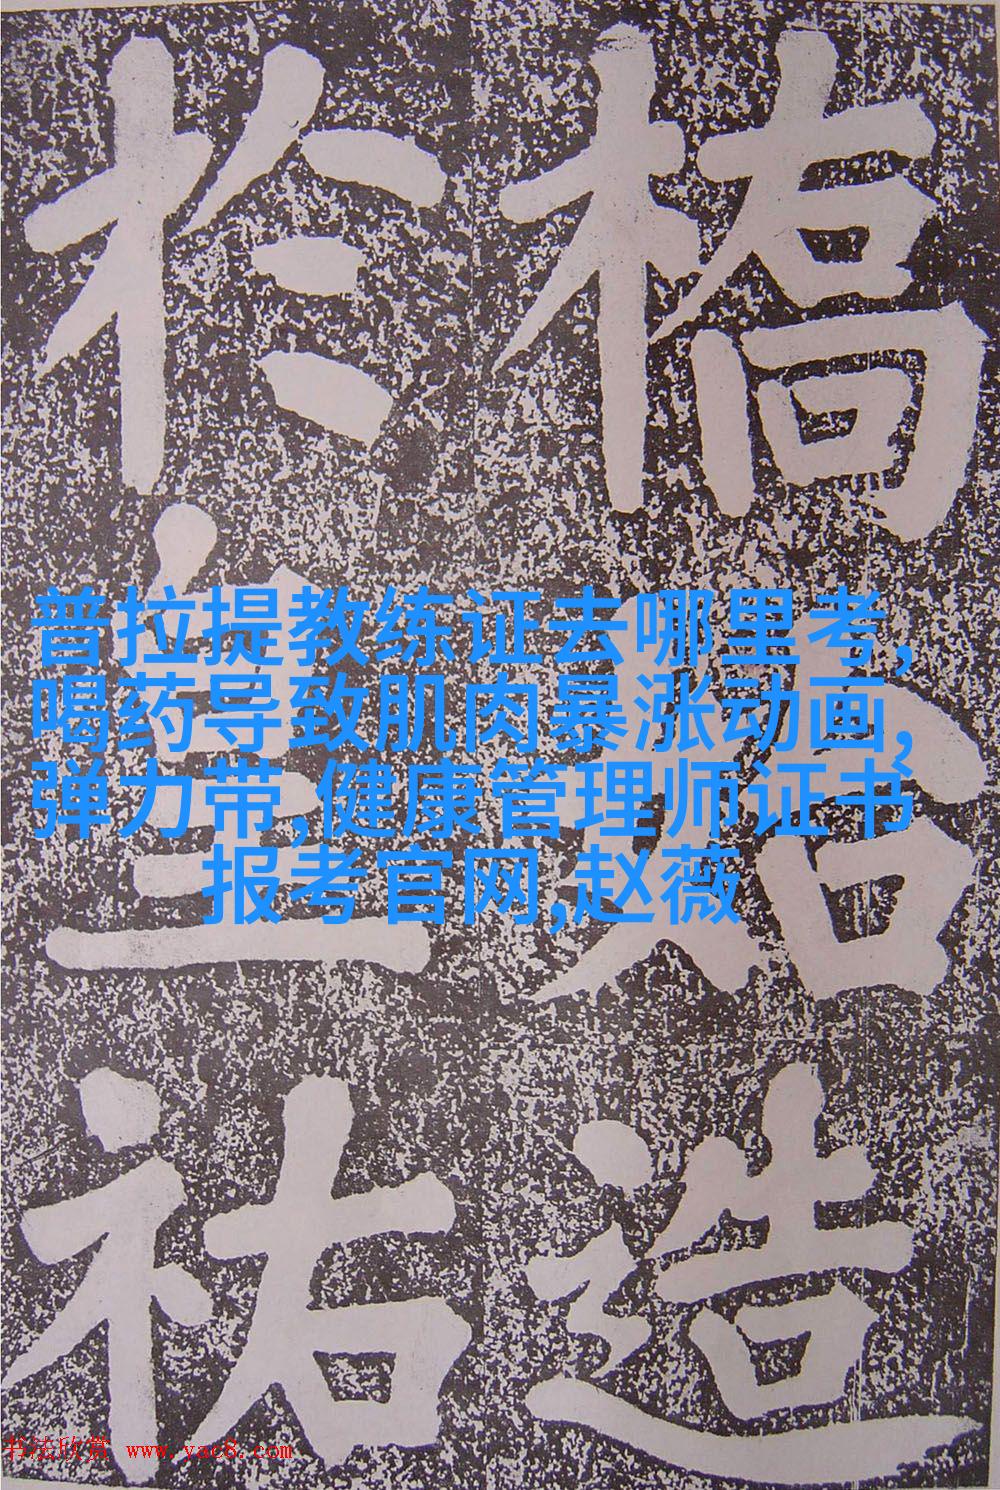 橋始造
於皇祐
普拉提教练证去哪里考,
喝药导致肌肉暴涨动画,
弹力带,健康管理师证书
报考官网,赵薇
书法欣赏 www.yac8.com